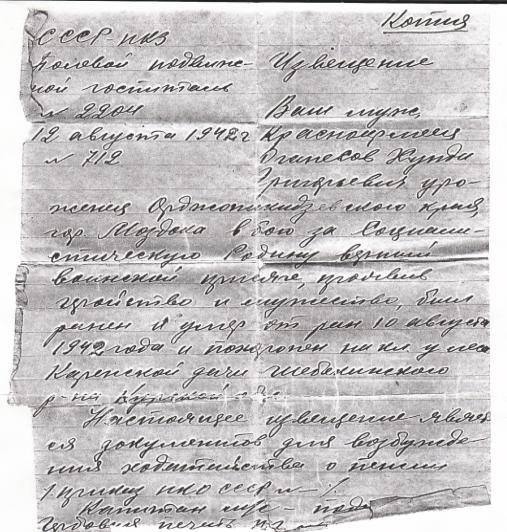 Копия
СССР-НКЗ
полевой подвиж-
ной госпиталь
№ 2204
12 августа 1942 г
№ 712
Извещение
Ваш муж,
Красноармеец
Оганесов
Григорьевич уро-
женец Орджоникидзевского края,
гор. Моздока в бою за Социали-
стическую Родину верный
воинской присяге, проявив
геройство и мужество, был
ранен и умер от ран 10 августа
1942 года и похоронен на кл. у леса
дачи Шебекинского
р-на Курской
Настоящее извещение являет
ся документом для возбужде-
ния ходатайства о пенсии
/приказ НКО СССР №
Капитан м/с - подп
Гербовая печать